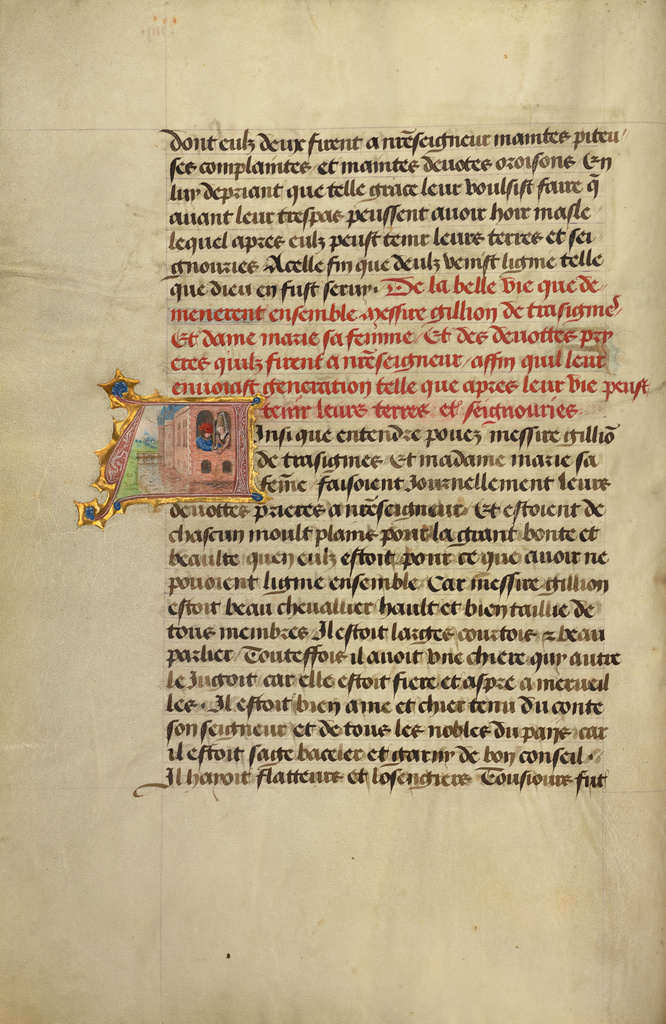 dont eulz deux firent a nr̃eseigneur maintes piteu
ses complaintes et maintes deuotes oroisons En
luy depriant que telle grace leur voulsist faire q̃
auant leur trespas peussent auoir hoir masle
lequel apres eulz peust tenir leurs terres et sei
gnouries Acelle fin que deulz veinst ligme telle
que dieu en fust seruy. De la belle vie que de
menerent ensemble messire gillion de trasigmes
Et dame marie sa femme / Et des deuottes pry
eres quilz firent a nr̃eseigneur / affin quil leur
enuoiast generation telle que apres leur vie peust
tenir leurs terres et seignouries.
Ainsi que entendre pouez messire gilliõ
de trasignies Et madame marie sa
fem̃e faisoient Journellement leurs
deuottes prieres a nr̃eseigneur / Et estoient de
chascun moult plains pour la grant bonte et
beaulte quen eulz estoit pour ce que auoir ne
pouoient ligme ensemble / Car messire gillion
estoit beau cheuallier hault et bien taillie de
tous membres / Il estoit larges courtois & beau
parlier / Touteffois il auoit vne chiere quy autre
le Jugoit car elle estoit fiere et aspre a merueil
les. Il estoit bien ame et chier tenu du conte
son seigneur et de tous les nobles du pays car
il estoit sage baceler et garny de bon conseil.
Il hayoit flatteurs et losengiers Tousiours fut